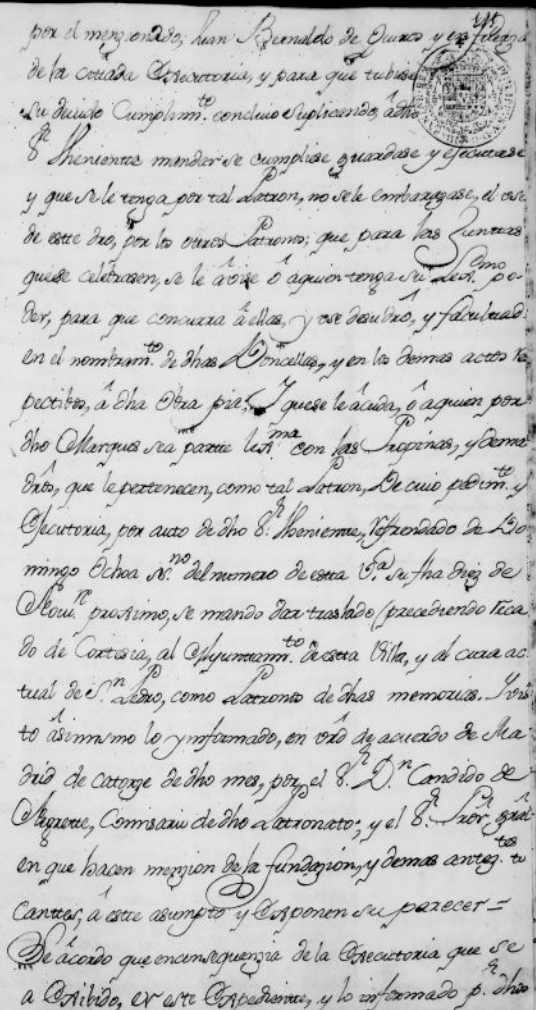 por el menzionado; Juan Bernaldo de Quiros y en fuerza
de la citada Executoria, y para que tubiese
su devido Cumplim.to concluio suplicando, â dho
S.r Theniente mandar se cumpliese guardase y executase
y que se le tenga por tal Patron, no se le embarazase, el uso
de este dro, por los otros Patronos; que para las Juntas
que se celebrasen, se le âvise ô a quien tenga su Lex.mo po-
der, para que concurra â ellas, y use de su drô, y facultad
en el nombram.to de dhas Doncellas, y en los demas actos res
pectibos, â dha Obra pia; Y que se le âcuda, ô a quien por
dho Marques sea parte lex.ma con las Propinas, y demas
drôs, que le pertenecen, como tal Patron, De cuio pedim.to y
Executoria, por auto de dho S.r Theniente, refrendado de Do
mingo Ochoa es.no del numero de esta V.a su fha diez de
Nov.re proximo, se mando dar traslado (precediendo reca
do de Cortesia, al Ayuntam.to de esta Villa, y al cura ac
tual de S.n Pedro, como Patronos de dhas memorias. Y vis
to âsimismo lo ynformado, en vrd de acuerdo de Ma
drid de catorze de dho mes, por el S.r D.n Candido de
Negrete, Comisario de dho Patronato; y el S.r Pror. gral
en que hacen menzion de la fundazion, y demas antez.tes to
cantes, â este asumpto y Exponen su parecer =
Se âcordo que en consequenzia de la Executoria que se
a Exibido, en este Expediente, y lo informado p.r dhos